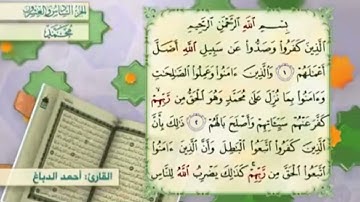 الجزء السادس والعشرون
محمد
بِسْمِ اللَّهِ الرَّحْمَٰنِ الرَّحِيمِ
الَّذِينَ كَفَرُوا وَصَدُّوا عَن سَبِيلِ اللَّهِ أَضَلَّ
أَعْمَالَهُمْ ١ وَالَّذِينَ ءَامَنُوا وَعَمِلُوا الصَّالِحَاتِ
وَءَامَنُوا بِمَا نُزِّلَ عَلَىٰ مُحَمَّدٍ وَهُوَ الْحَقُّ مِن رَّبِّهِمْ
كَفَّرَ عَنْهُمْ سَيِّئَاتِهِمْ وَأَصْلَحَ بَالَهُمْ ٢ ذَٰلِكَ بِأَنَّ
الَّذِينَ كَفَرُوا اتَّبَعُوا الْبَاطِلَ وَأَنَّ الَّذِينَ ءَامَنُوا
اتَّبَعُوا الْحَقَّ مِن رَّبِّهِمْ كَذَٰلِكَ يَضْرِبُ اللَّهُ لِلنَّاسِ
القارئ: أحمد الدباغ